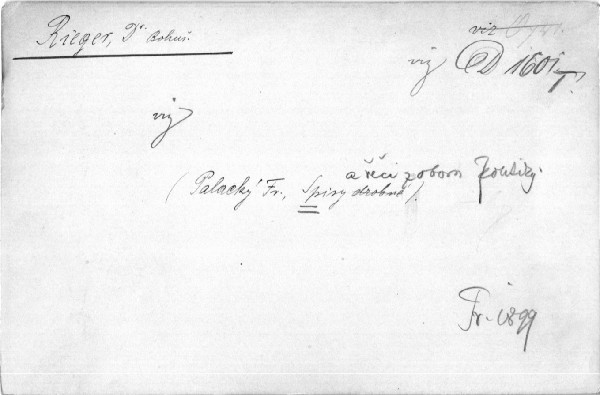 Rieger, Dr. Bohuš.
viz
viz D 1601/T.
viz
a řeči z oboru politiky.
(Palacký Fr., Spisy drobné).
Fr. 1899